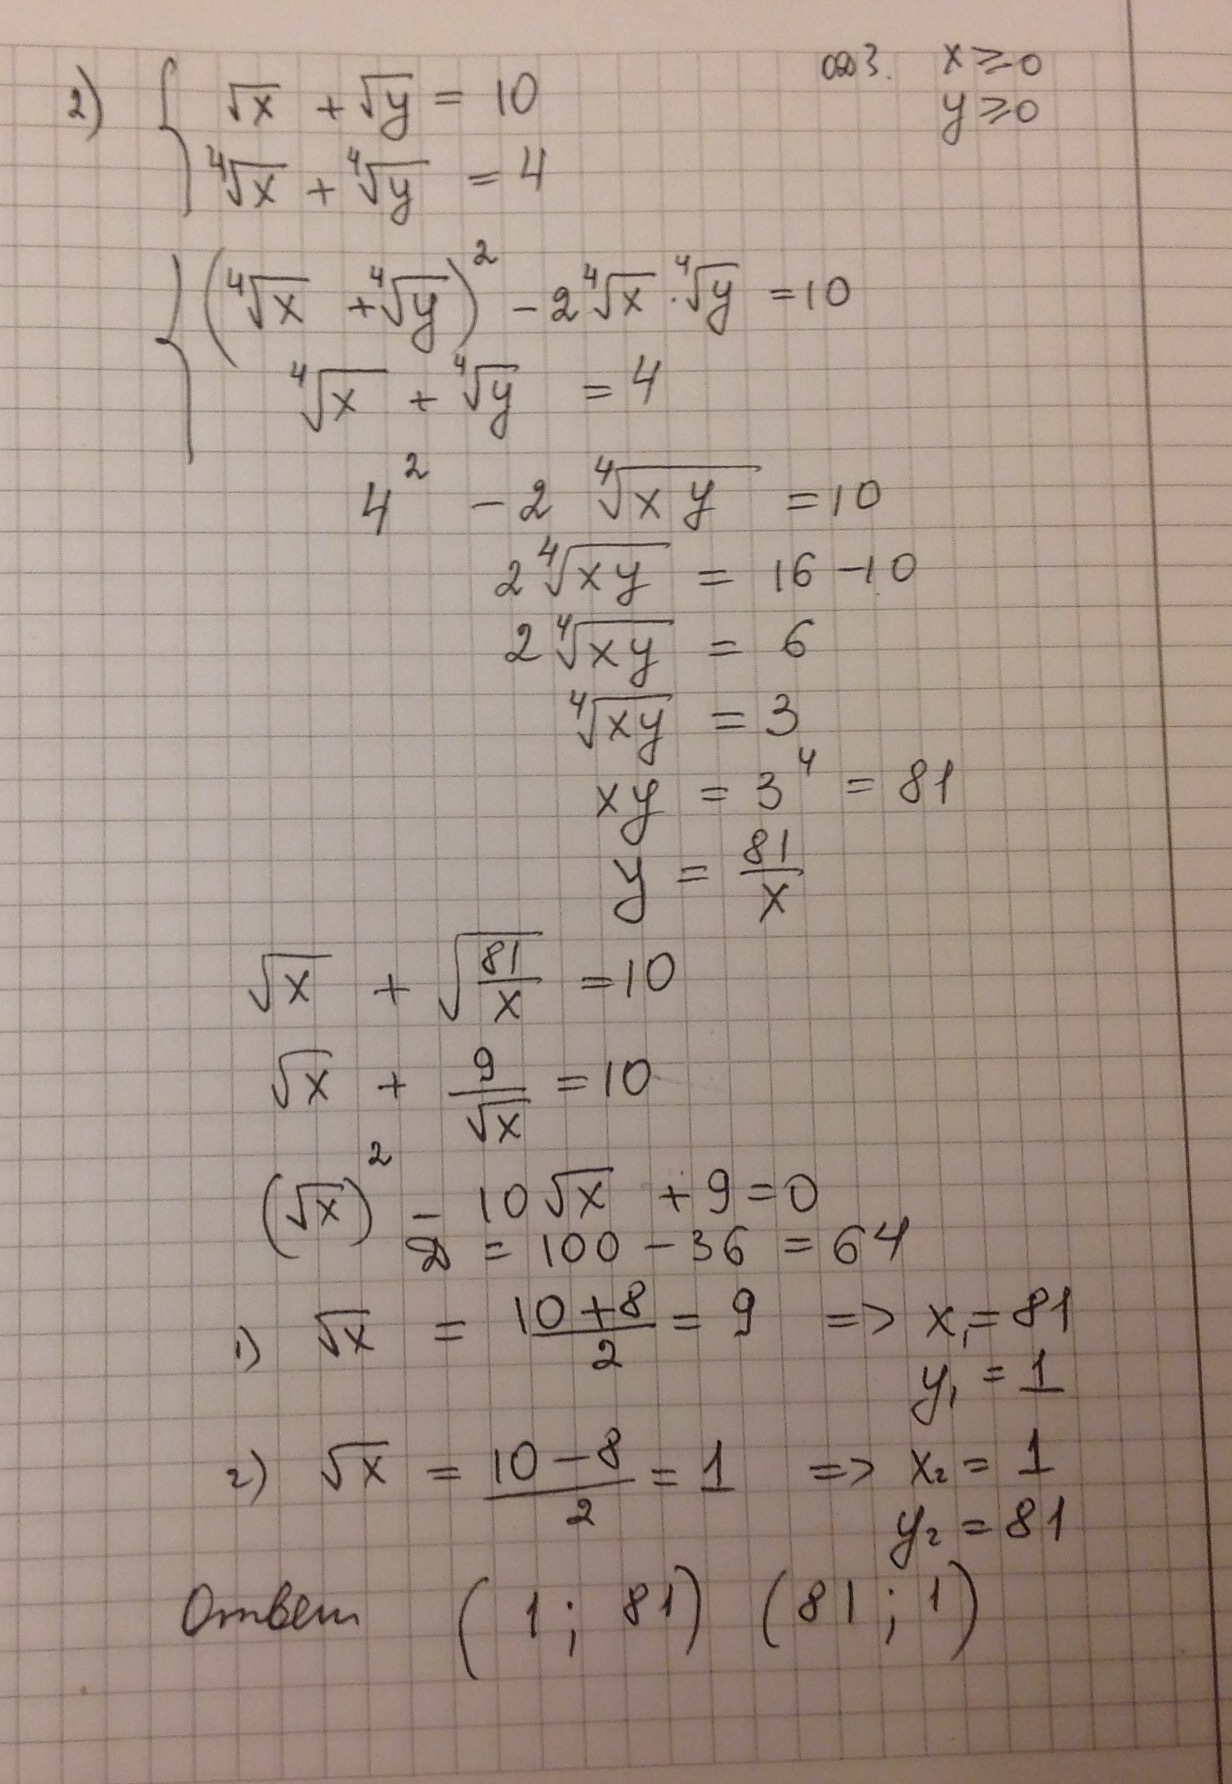 2) { √x + √y = 10
⁴√x + ⁴√y = 4
ОДЗ. x ≥ 0
y ≥ 0
{ (⁴√x + ⁴√y)² - 2 ⁴√x · ⁴√y = 10
⁴√x + ⁴√y = 4
4² - 2 ⁴√(xy) = 10
2 ⁴√(xy) = 16 - 10
2 ⁴√(xy) = 6
⁴√(xy) = 3
xy = 3⁴ = 81
y = 81/x
√x + √(81/x) = 10
√x + 9/√x = 10
(√x)² - 10√x + 9 = 0
D = 100 - 36 = 64
1) √x = (10+8)/2 = 9 => x₁ = 81
y₁ = 1
2) √x = (10-8)/2 = 1 => x₂ = 1
y₂ = 81
Ответ (1; 81) (81; 1)